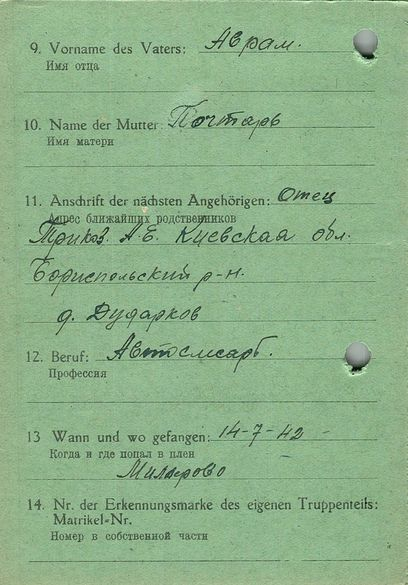 9. Vorname des Vaters: Аврам.
Имя отца
10. Name der Mutter: Почтарь
Имя матери
11. Anschrift der nächsten Angehörigen: Отец
Адрес ближайших родственников
А. Е. Киевская обл.
Бориспольский р-н.
д. Дударков
12. Beruf: Автослесарь.
Профессия
13 Wann und wo gefangen: 14-7-42 -
Когда и где попал в плен
Миллерово
14. Nr. der Erkennungsmarke des eigenen Truppenteils:
Matrikel-Nr.
Номер в собственной части